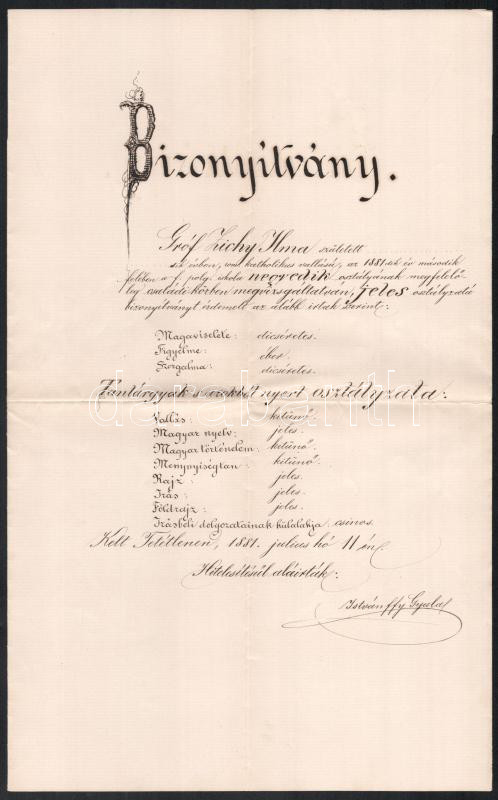 Bizonyítvány.
Gróf Zichy Ilma született
-ik évben, róm. katholikus vallású, az 1881-dik év második
felében a f. polg. iskola negyedik osztályának megfelelő-
leg családi körben megvizsgáltatván, jeles osztályzatú
bizonyítványt érdemelt az alább irtak szerint:
Magaviselete: dicséretes.
Figyelme: éber.
Szorgalma: dicséretes.
Tantárgyak s ezekből nyert osztályzata:
Vallás: kitünő.
Magyar nyelv: jeles.
Magyar történelem: kitünő.
Mennyiségtan: kitünő.
Rajz: jeles.
Irás: jeles.
Földrajz: jeles.
Irásbeli dolgozatainak külalakja: csinos.
Kelt Tetétlenen, 1881. julius hó 11-én.
Hitelesítésül aláirták:
Istvánffy Gyula